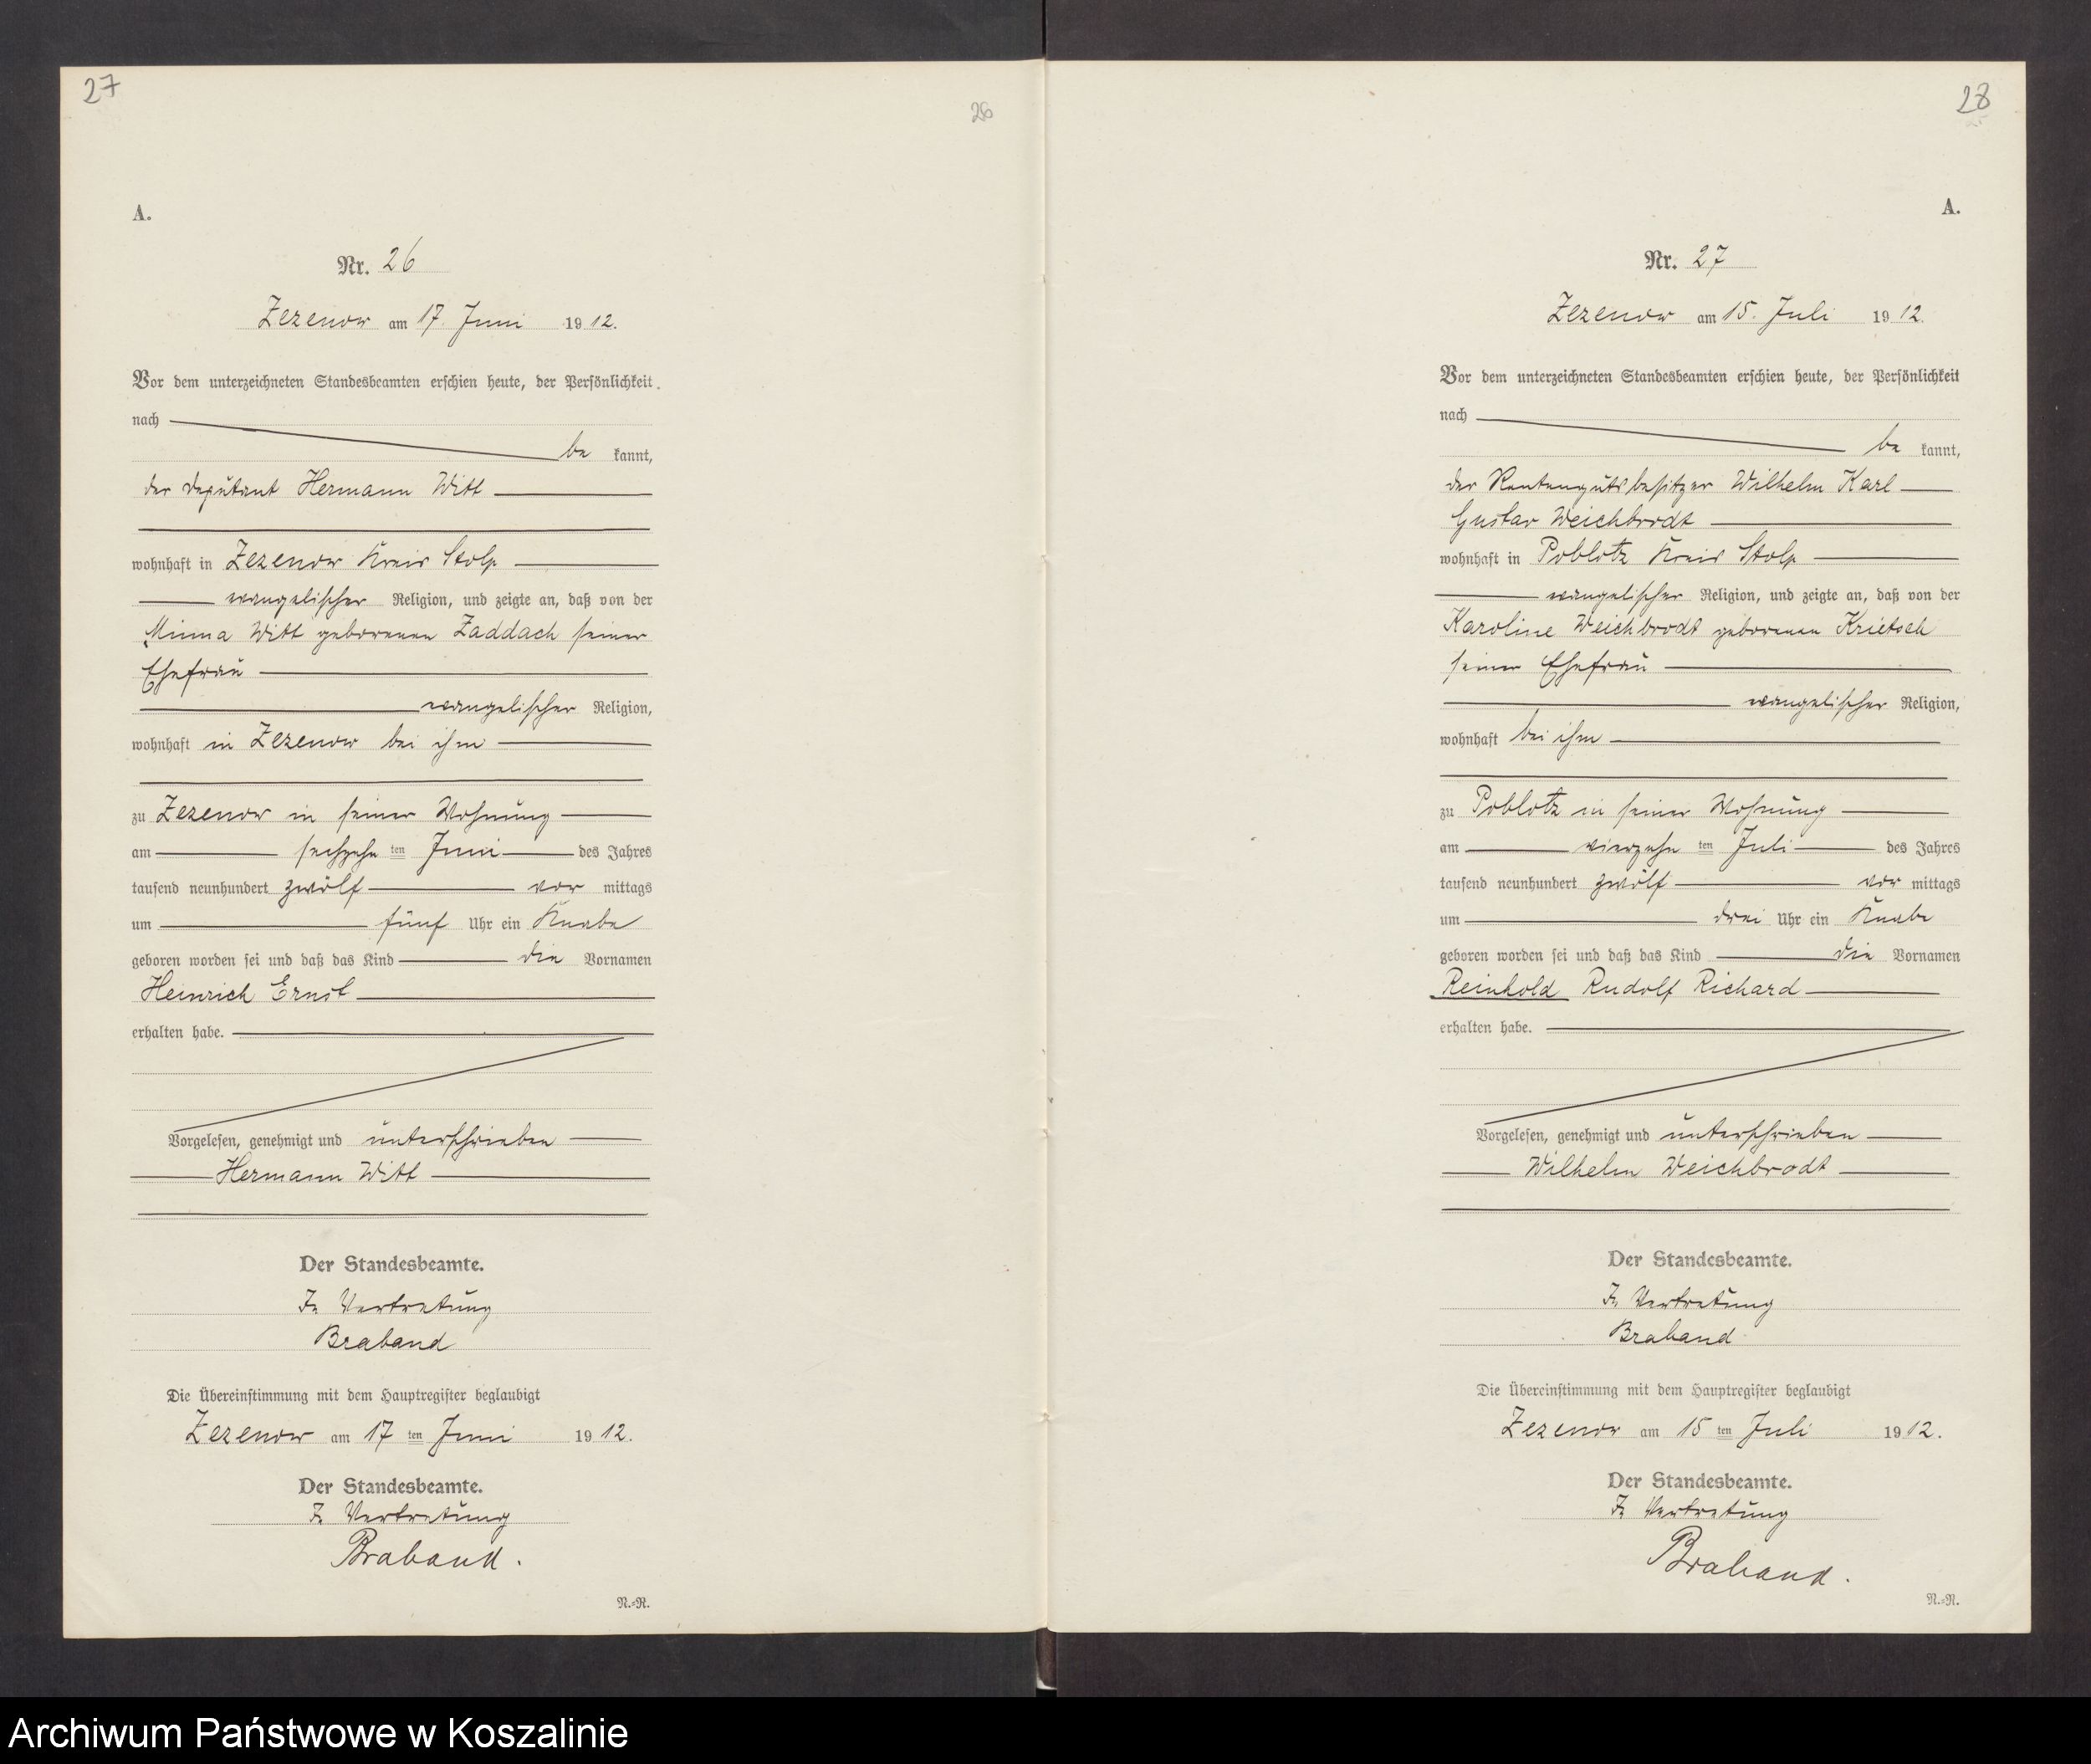 27
26
A.
Nr. 26
Zezenow am 17. Juni 1912.
Vor dem unterzeichneten Standesbeamten erschien heute, der Persönlichkeit
nach
be kannt,
der Deputant Hermann Witt
wohnhaft in Zezenow Kreis Stolp
evangelischer Religion, und zeigte an, daß von der
Minna Witt geborenen Zaddach seiner
Ehefrau
evangelischer Religion,
wohnhaft in Zezenow bei ihm
zu Zezenow in seiner Wohnung
am sechzehn ten Juni des Jahres
tausend neunhundert zwölf vor mittags
um fünf Uhr ein Knabe
geboren worden sei und daß das Kind die Vornamen
Heinrich Ernst
erhalten habe.
Vorgelesen, genehmigt und unterschrieben
Hermann Witt
Der Standesbeamte.
In Vertretung
Braband
Die Übereinstimmung mit dem Hauptregister beglaubigt
Zezenow am 17 ten Juni 1912.
Der Standesbeamte.
In Vertretung
Braband.
N.=R.
28
A.
Nr. 27
Zezenow am 15. Juli 1912.
Vor dem unterzeichneten Standesbeamten erschien heute, der Persönlichkeit
nach
be kannt,
der Rentengutsbesitzer Wilhelm Karl
Gustav Weichbrodt
wohnhaft in Poblotz Kreis Stolp
evangelischer Religion, und zeigte an, daß von der
Karoline Weichbrodt geborenen Krietsch
seiner Ehefrau
evangelischer Religion,
wohnhaft bei ihm
zu Poblotz in seiner Wohnung
am vierzehn ten Juli des Jahres
tausend neunhundert zwölf vor mittags
um drei Uhr ein Knabe
geboren worden sei und daß das Kind die Vornamen
Reinhold Rudolf Richard
erhalten habe.
Vorgelesen, genehmigt und unterschrieben
Wilhelm Weichbrodt
Der Standesbeamte.
In Vertretung
Braband
Die Übereinstimmung mit dem Hauptregister beglaubigt
Zezenow am 15 ten Juli 1912.
Der Standesbeamte.
In Vertretung
Braband.
N.=R.
Archiwum Państwowe w Koszalinie